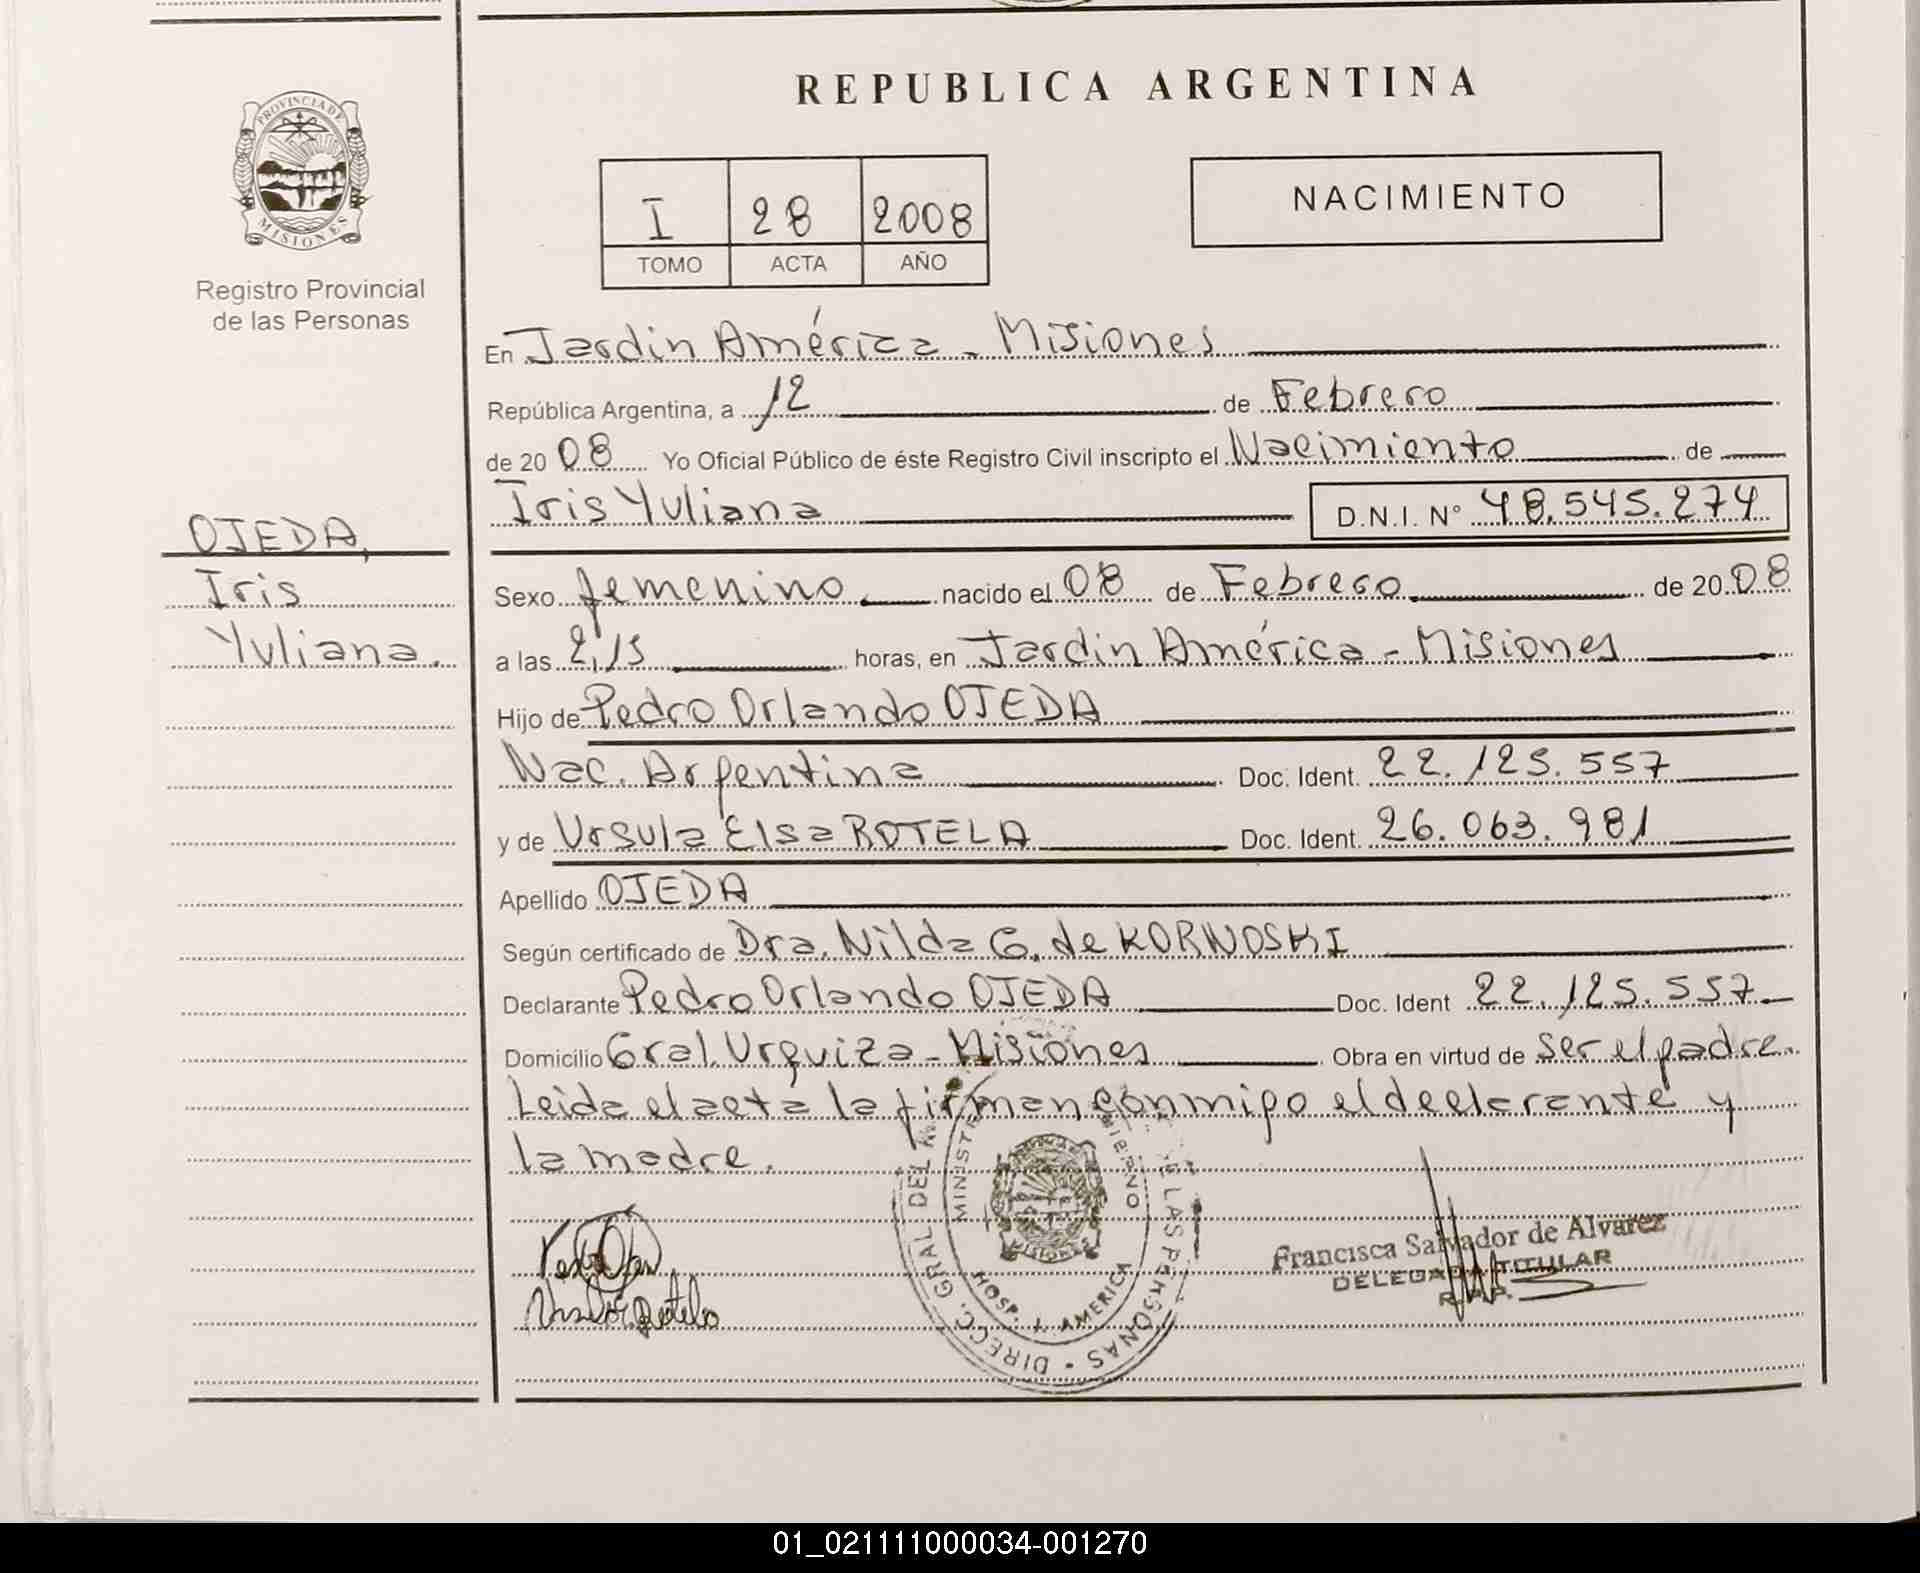 REPUBLICA ARGENTINA
PROVINCIA DE
MISIONES
Registro Provincial
de las Personas
I 28 2008
TOMO ACTA AÑO
NACIMIENTO
En Jardin América - Misiones
República Argentina, a 12 de Febrero
de 20 08 Yo Oficial Público de éste Registro Civil inscripto el Nacimiento de
Iris Yuliana D.N.I. N° 48.545.274
OJEDA,
Iris
Yuliana.
Sexo femenino nacido el 08 de Febrero de 20 08
a las 2,15 horas, en Jardin América - Misiones
Hijo de Pedro Orlando OJEDA
Nac. Argentina Doc. Ident. 22.125.557
y de Ursula Elsa ROTELA Doc. Ident. 26.063.981
Apellido OJEDA
Según certificado de Dra. Nilda G. de KORNOSKI
Declarante Pedro Orlando OJEDA Doc. Ident 22.125.557
Domicilio Gral. Urquiza - Misiones Obra en virtud de ser el padre.
Leida el acta la firman conmigo el declarante y
la madre.
DIRECC. GRAL DEL LAS PERSONAS
HOSP. J. AMERICA
MISIONES
Francisca Salvador de Alvarez
DELEGADA TITULAR
R.P.P.
01_021111000034-001270